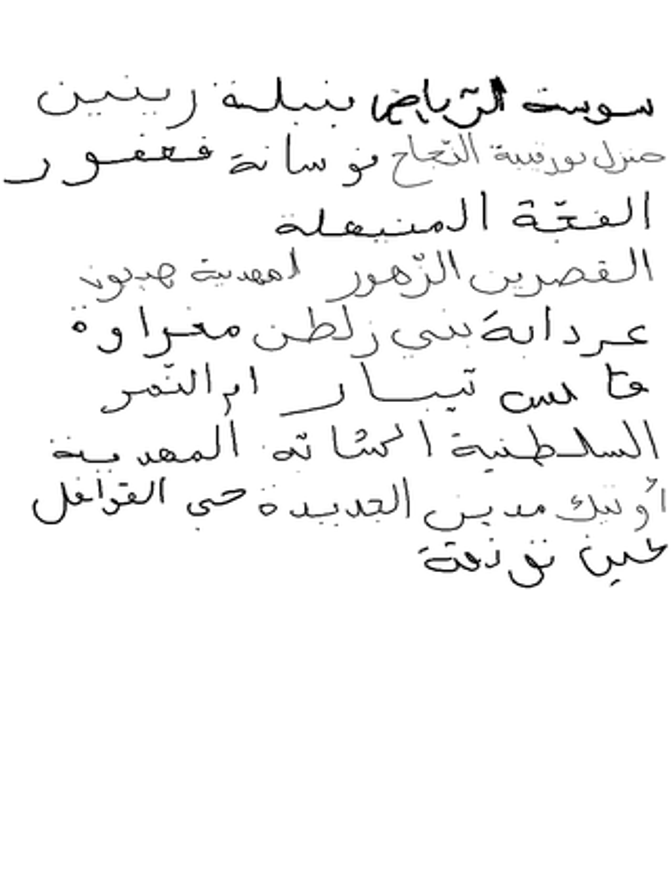 سوسة الرياض بنبلة زينين
منزل بورقيبة النجاح نوسانة فعفور
الفجّة المنيهلة
القصرين الزّهور المهدية هبون
عردابة بني زلطن مغراوة
قابس تيبار ام النّمر
السلطنية المهدية
أوتيك مدين الجديدة حي القوافل